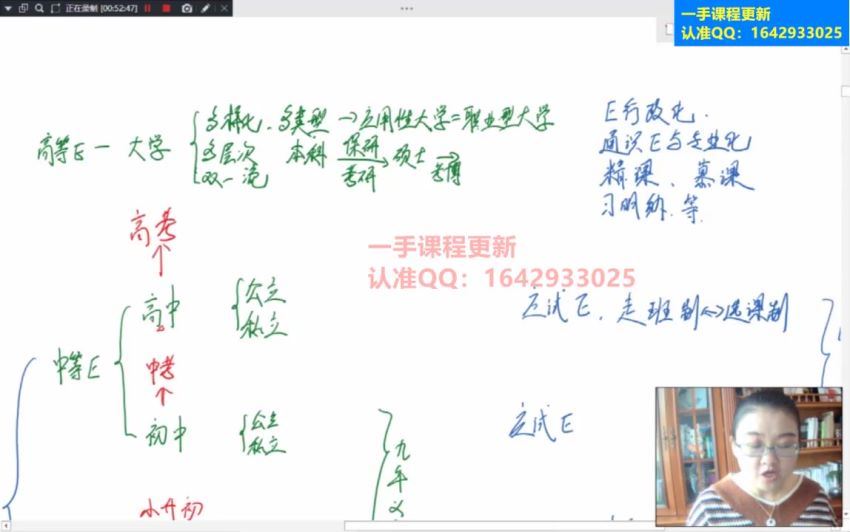 正在录制 [00:52:47]
一手课程更新
认准QQ：1642933025
高等E一 大学
多样化、多类型 → 应用性大学=职业型大学
多层次 本科 保研 考研 → 硕士 → 考博
双一流
E行政化.
通识E与专业化
精课、慕课
习明纳.等
高考
一手课程更新
认准QQ：1642933025
中等E
高中
公立
私立
应试E，走班制<->选课制
中考
初中
公立
私立
应试E
九年义
小升初